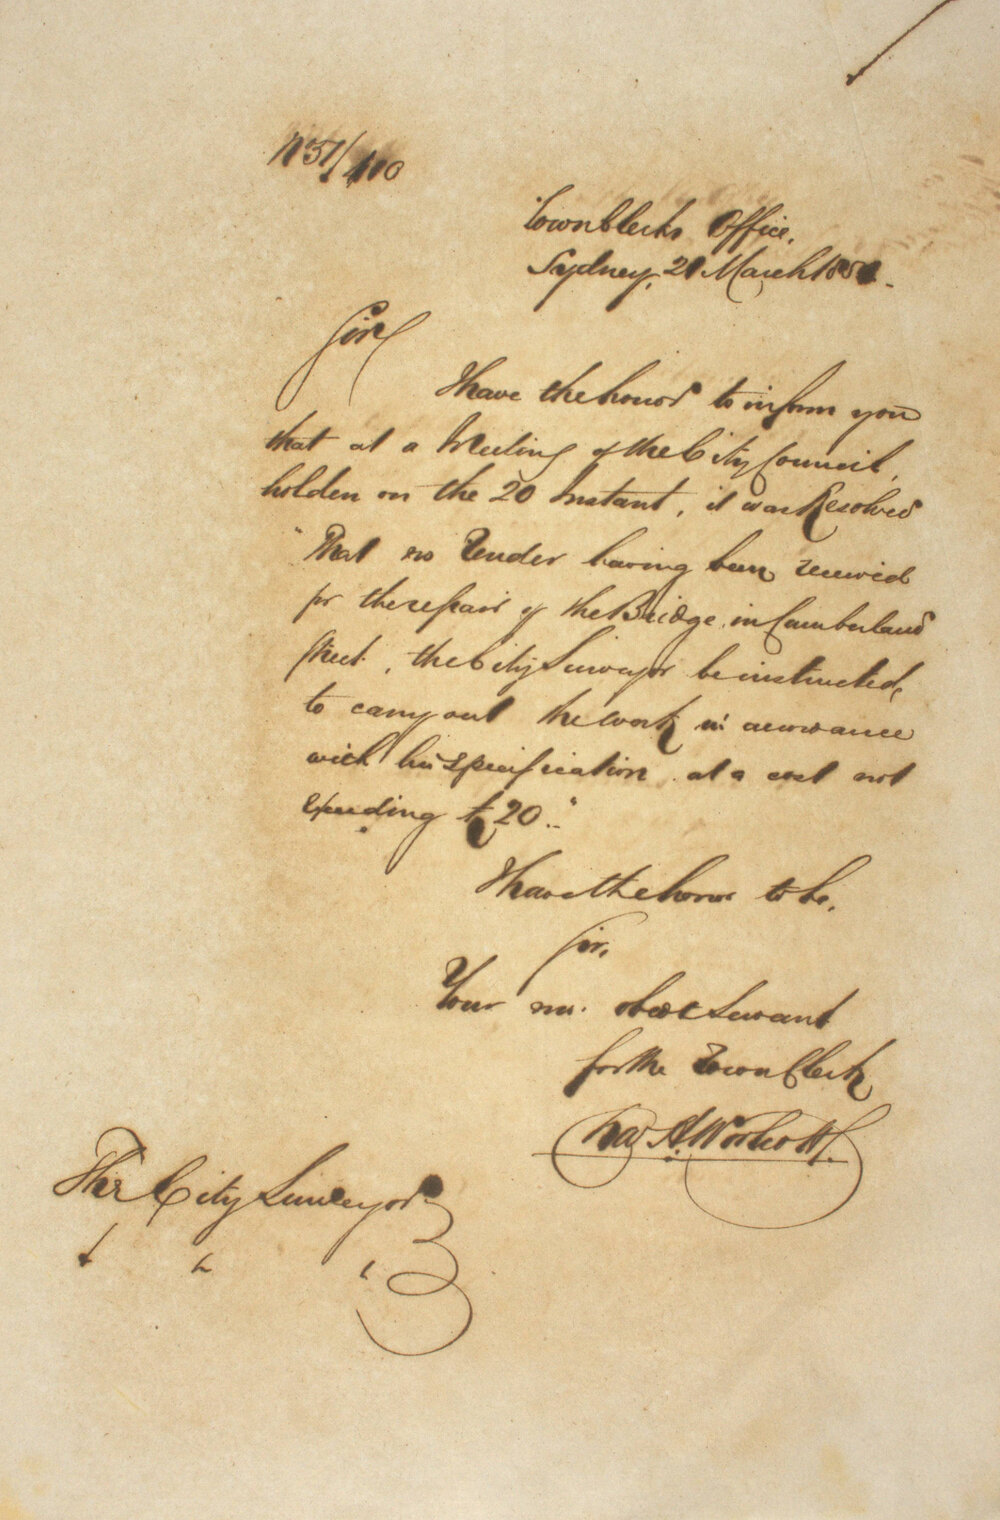 No 51/110
Town Clerks Office,
Sydney, 21 March 185
Sir
I have the honor to inform you
that at a Meeting of the City Council,
holden on the 20 Instant, it was Resolved
"That no Tender having been received
for the repair of the Bridge in Cumberland
Street, the City Surveyor be instructed,
to carry out the work in accordance
with his specification at a cost not
exceeding £20."
I have the honor to be,
Sir,
Your mo. obedt Servant
for the Town Clerk
The City Surveyor